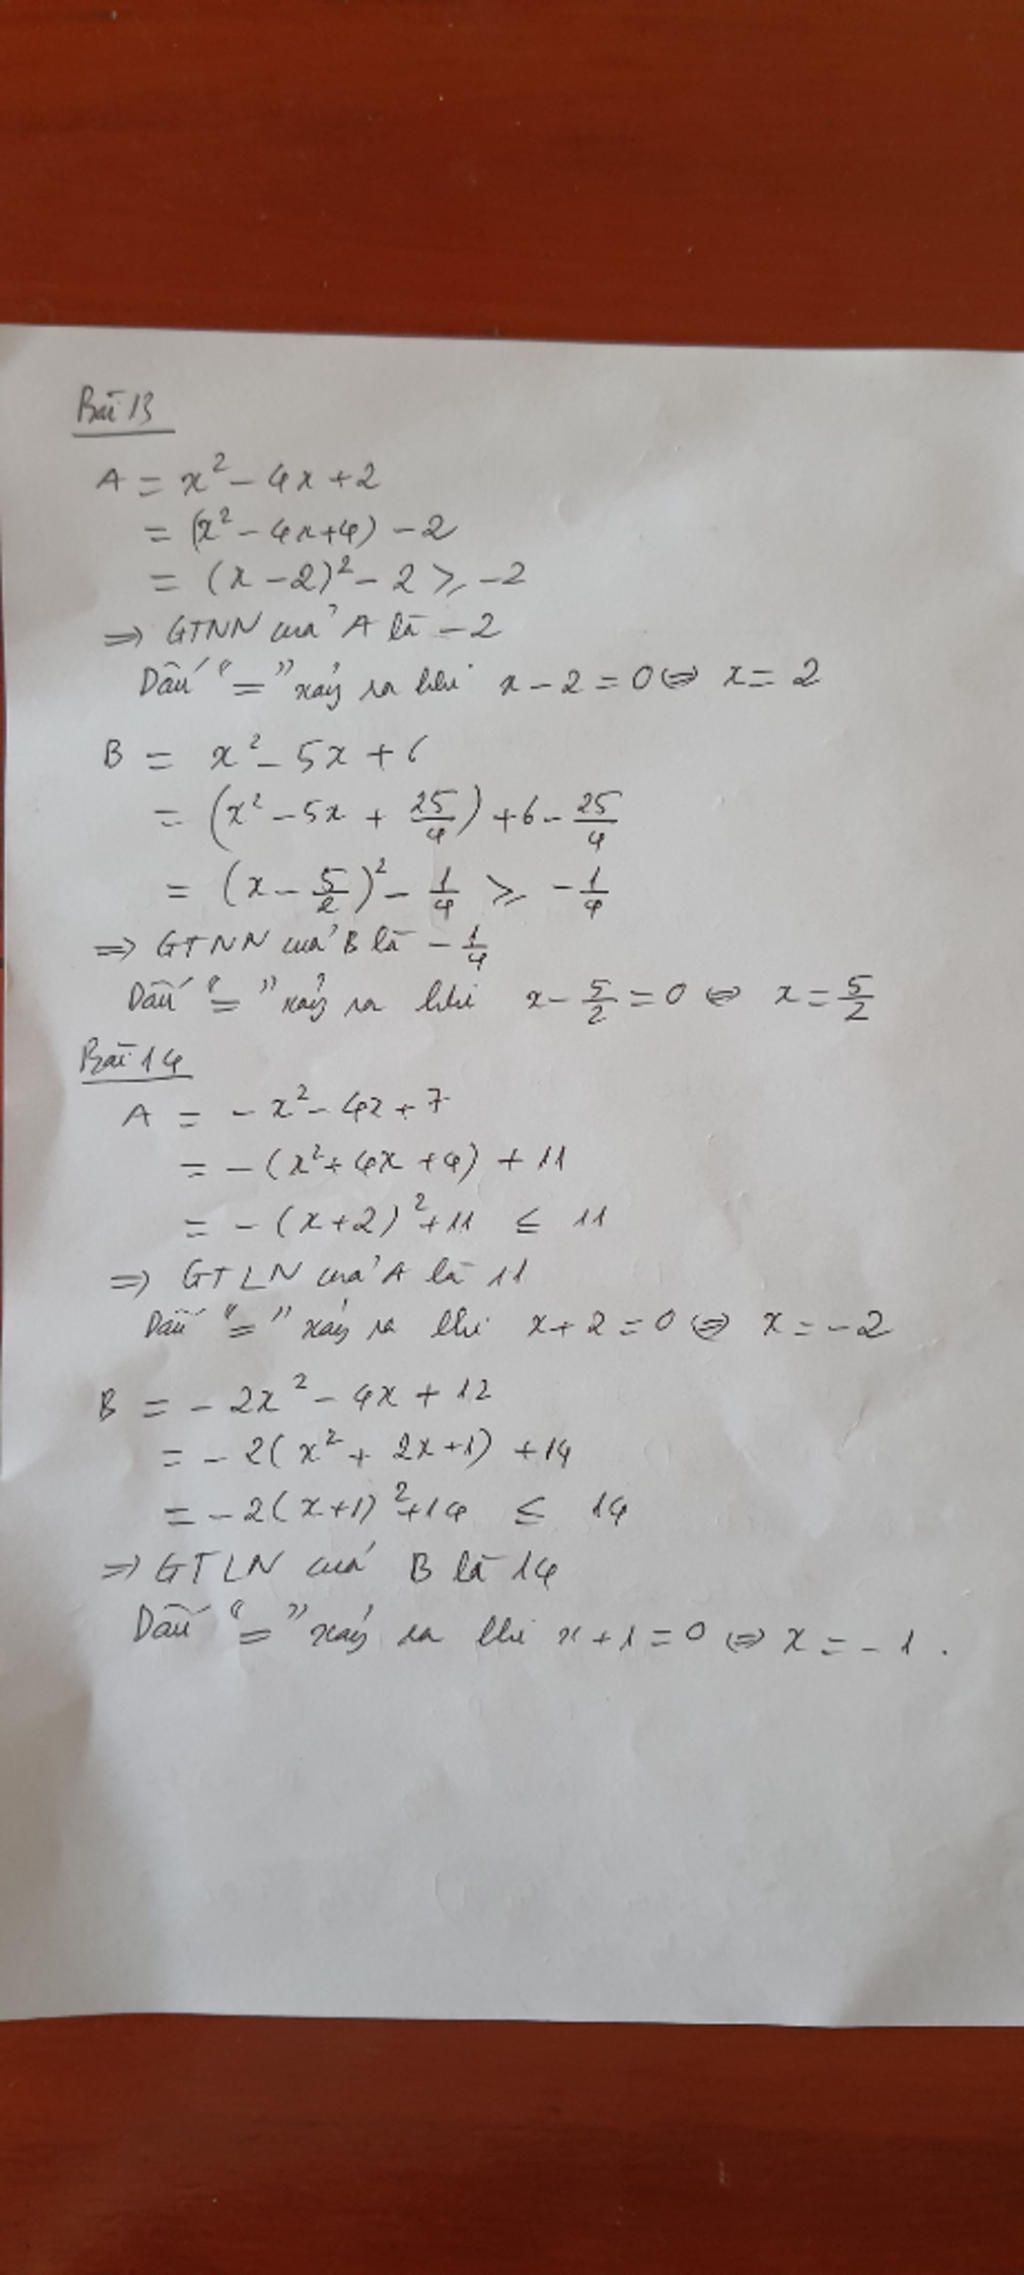 Bài 13
A = x² - 4x + 2
= (x² - 4x + 4) - 2
= (x - 2)² - 2 ⩾ -2
⇒ GTNN của A là -2
Dấu "=" xảy ra khi x - 2 = 0 ⇔ x = 2
B = x² - 5x + 6
= (x² - 5x + 25/4) + 6 - 25/4
= (x - 5/2)² - 1/4 ⩾ -1/4
⇒ GTNN của B là -1/4
Dấu "=" xảy ra khi x - 5/2 = 0 ⇔ x = 5/2
Bài 14
A = -x² - 4x + 7
= -(x² + 4x + 4) + 11
= -(x + 2)² + 11 ≤ 11
⇒ GTLN của A là 11
Dấu "=" xảy ra khi x + 2 = 0 ⇔ x = -2
B = -2x² - 4x + 12
= -2(x² + 2x + 1) + 14
= -2(x + 1)² + 14 ≤ 14
⇒ GTLN của B là 14
Dấu "=" xảy ra khi x + 1 = 0 ⇔ x = -1.